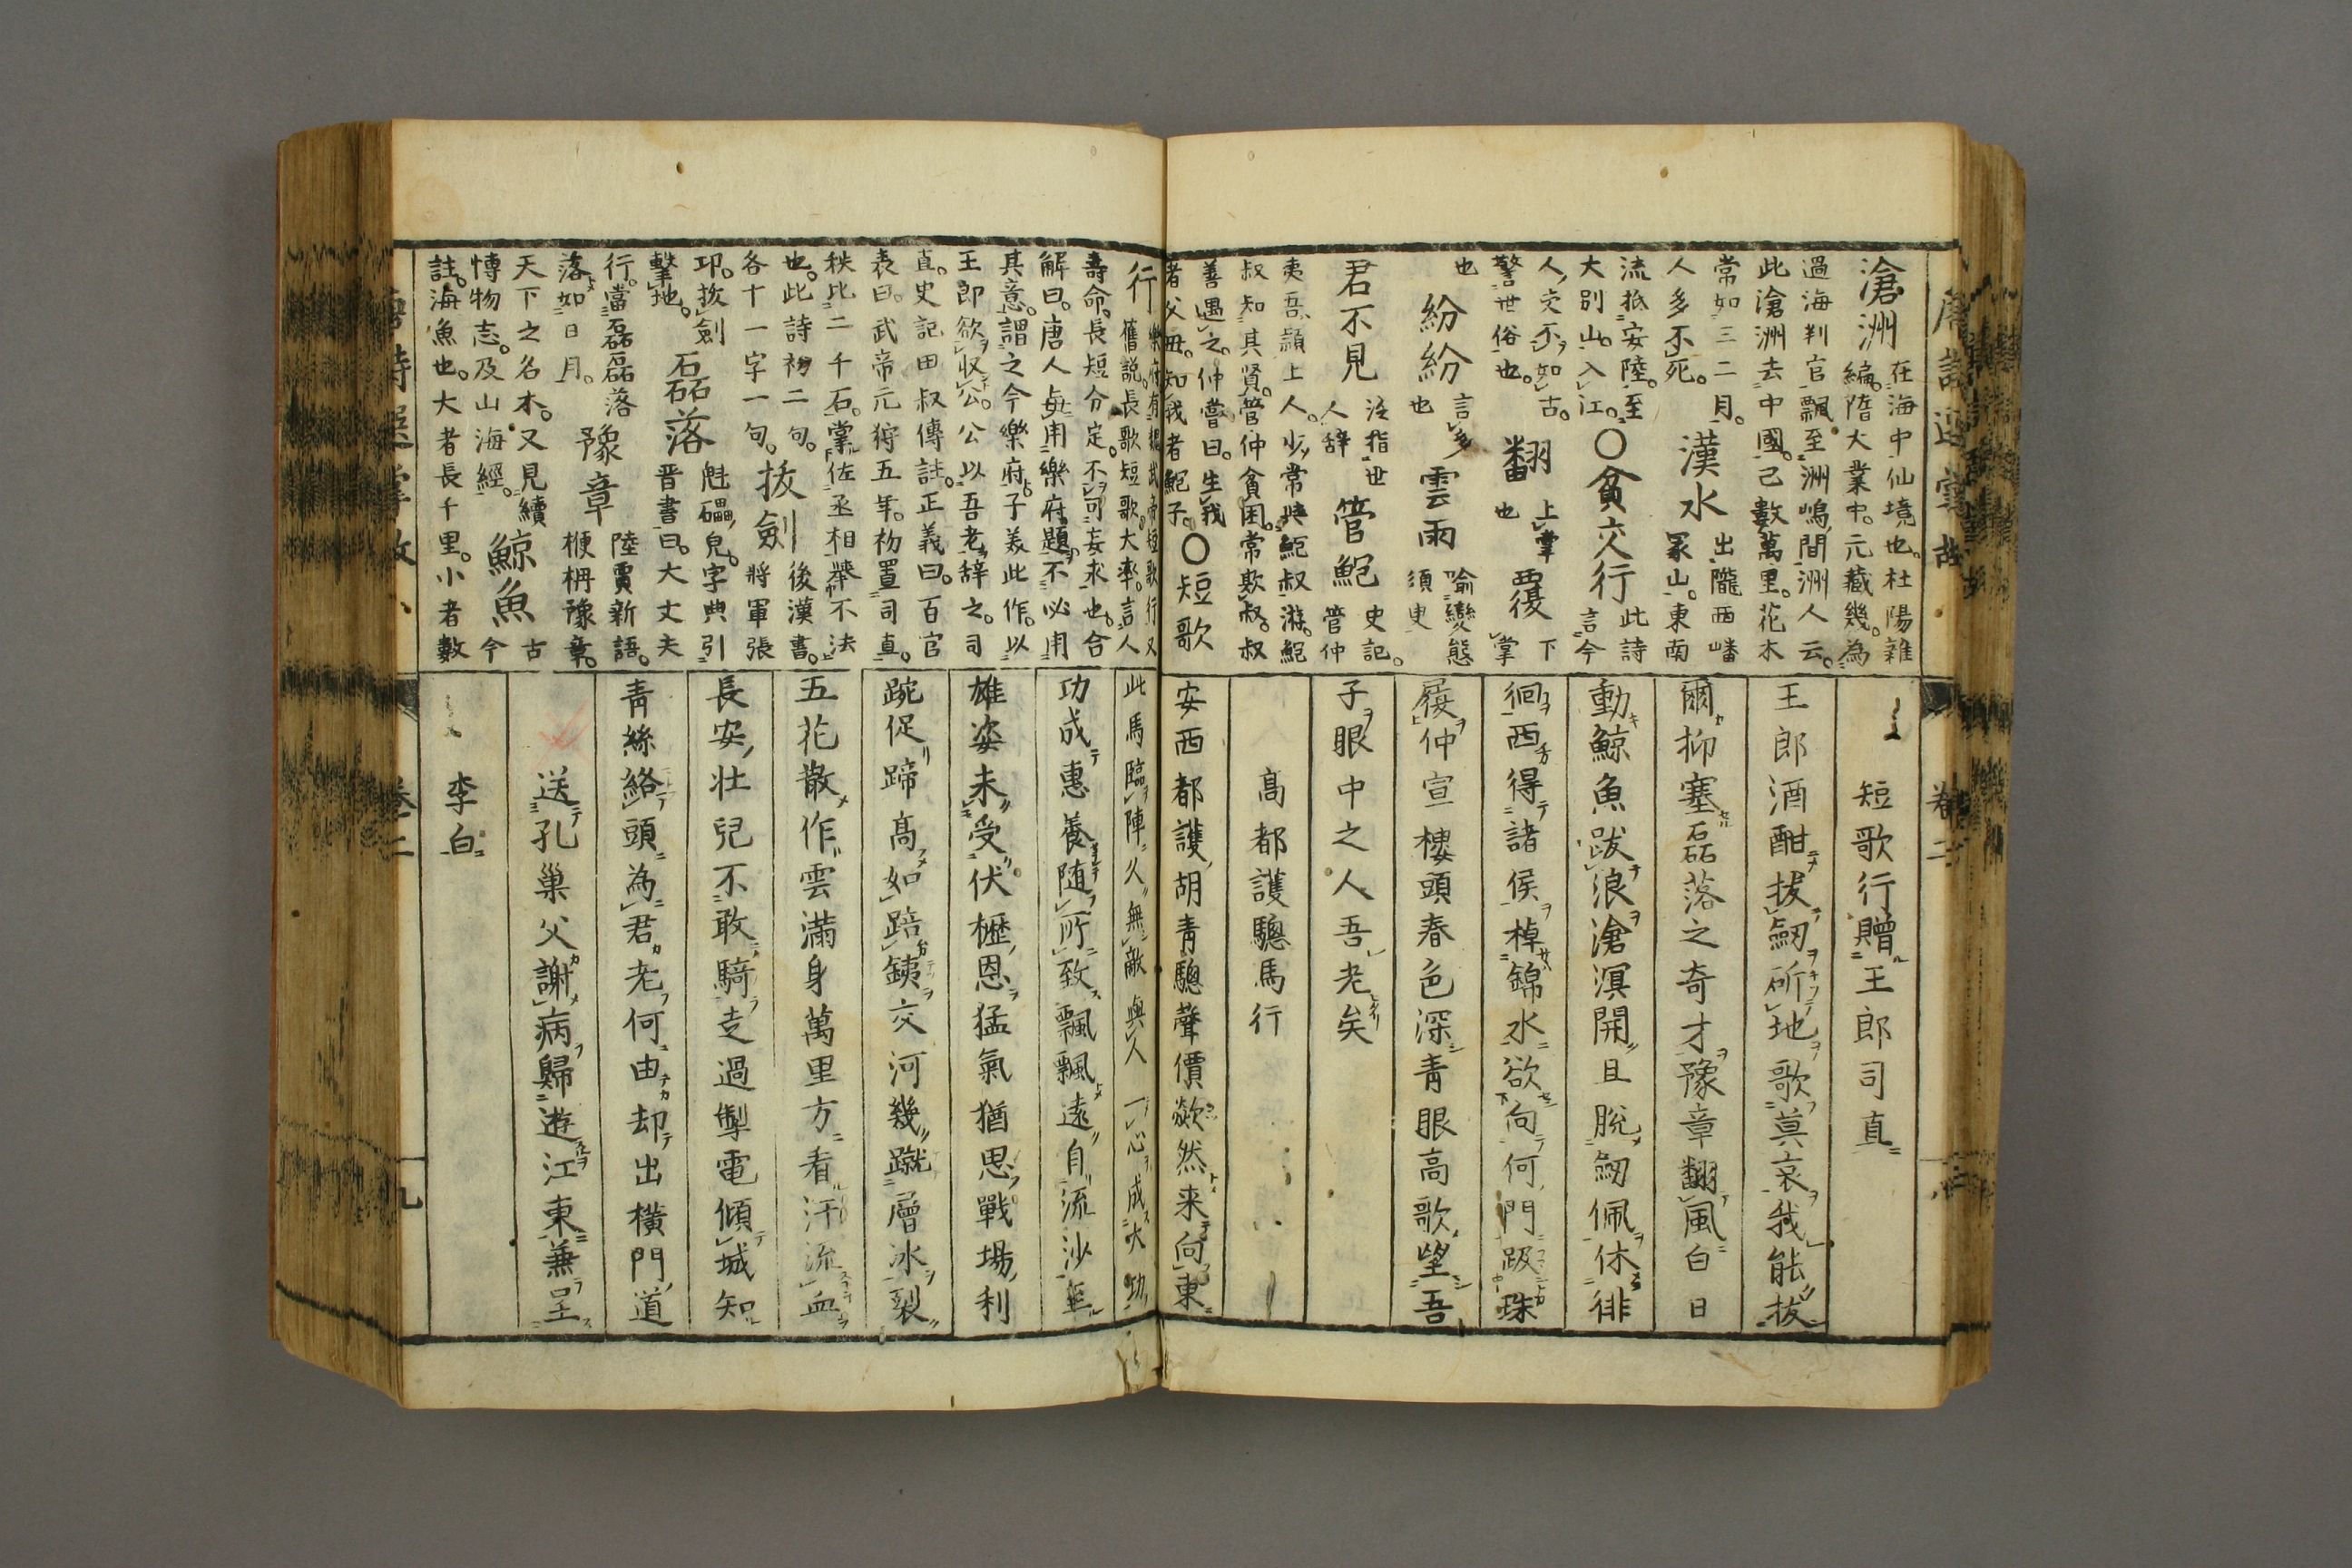 滄洲 在海中仙境也。杜陽雜
編。隋大業中。元藏幾。為
過海判官飄至洲嶋間洲人云。
此滄洲去中國。已數萬里。花木
常如三二月。漢水 出隴西嶓
人多不死。 冢山。東南
流抵安陸。至○貧交行 此詩
大別山。入江。 言今
人交不如古。翻 上掌 覆 下
警世俗也。 也 掌
也 紛紛 言多 雲雨 喻變態
也 須臾
君不見 泛指世 管鮑 史記。
人辭 管仲
夷吾。潁上人。少常與鮑叔游。鮑
叔知其賢。管仲貧困。常欺叔。叔
善遇之。仲嘗曰。生我
者父母。知我者鮑子。○短歌
短歌行贈王郎司直
王郎酒酣拔劒斫地歌莫哀我能拔
爾抑塞磊落之奇才豫章翻風白日
動鯨魚跋浪滄溟開且脫劒佩休徘
徊西得諸侯棹錦水欲向何門趿珠
履仲宣樓頭春色深青眼高歌望吾
子眼中之人吾老矣
高都護驄馬行
安西都護胡青驄聲價歘然来向東
行 樂府有魏武帝短歌行又
舊說。長歌短歌。大率。言人
壽命。長短分定。不可妄求也。合
解曰。唐人每用樂府題。不必用
其意。謂之今樂府。子美此作。以
王郎欲收公。公以吾老辭之。司
直。史記田叔傳註。正義曰。百官
表曰。武帝元狩五年。初置司直。
秩比二千石。掌佐丞相舉不法
也。此詩初二句。 後漢書。
各十一字一句。拔劍 將軍張
卭。拔劍 磊落 魁礧皃。字典引
擊地。 晋書曰。大丈夫
行。當磊磊落 豫章 陸賈新語。
落如日月。 楩柟豫章。
天下之名木。又見續 鯨魚 古
博物志。及山海經。 今
註。海魚也。大者長千里。小者數
此馬臨陣久無敵與人一心成大功
功成惠養随所致飄飄遠自流沙至
雄姿未受伏櫪恩猛氣猶思戰場利
踠促蹄高如踣銕交河幾蹴層冰裂
五花散作雲滿身萬里方看汗流血
長安壮兒不敢騎走過掣電傾城知
青絲絡頭為君老何由却出橫門道
送孔巢父謝病歸遊江東兼呈
李白